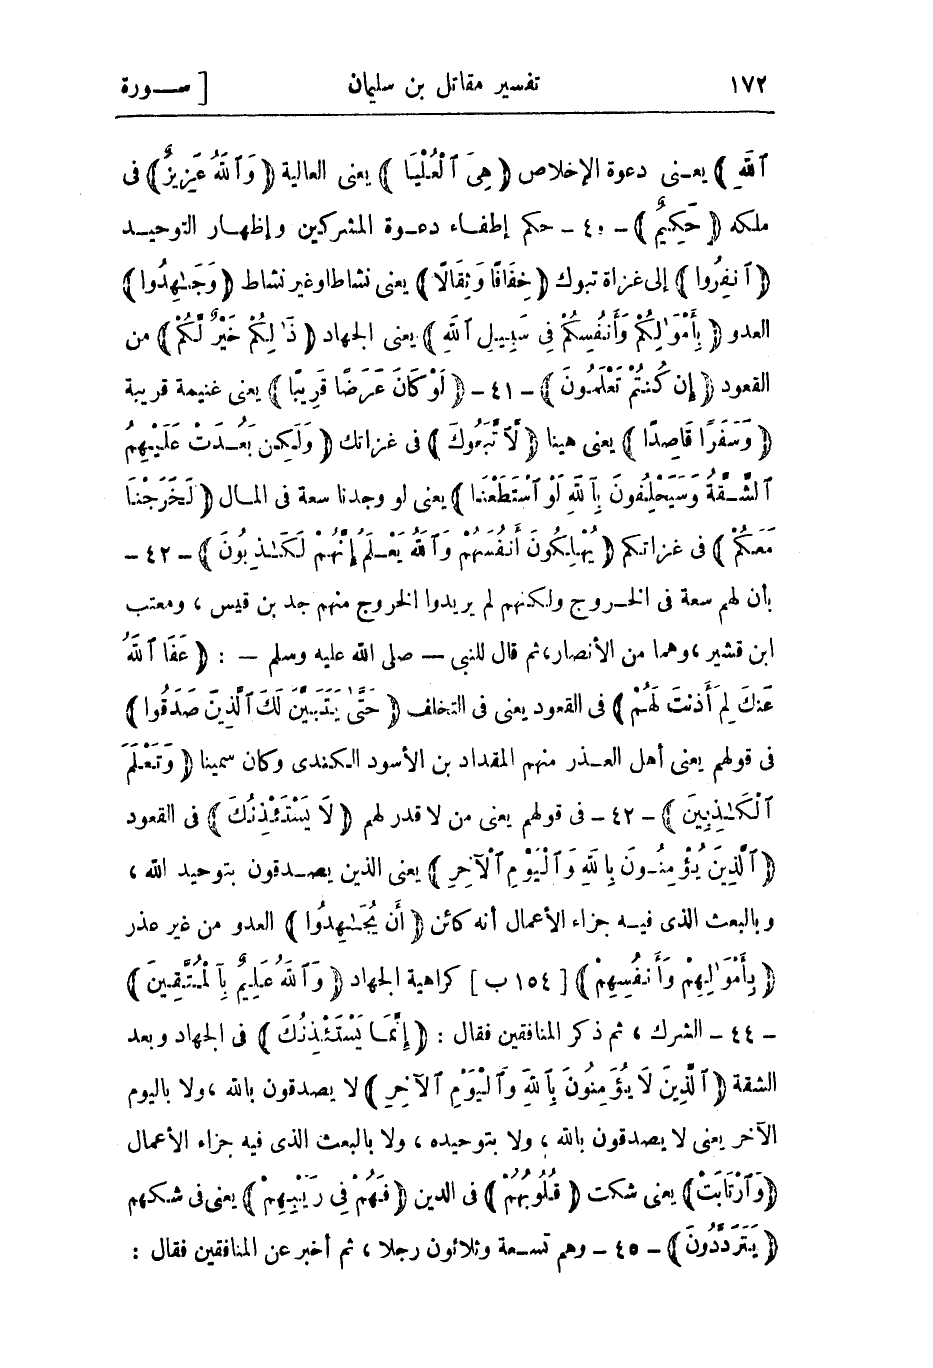 ١٧٢ تفسير مقاتل بن سليمان [ ســورة
ٱللَّهِ ﴾ يعــنى دعوة الإخلاص ﴿ هِىَ ٱلْعُلْيَا ﴾ يعنى العالية ﴿ وَٱللَّهُ عَزِيزٌ ﴾ فى
ملكه ﴿ حَكِيمٌ ﴾ - ٤٠ - حكم إطفـاء دعـوة المشركين وإظهـار التوحيـد
﴿ ٱنفِرُوا ﴾ إلى غزاة تبوك ﴿ خِفَافًا وَثِقَالًا ﴾ يعنى نشاطا وغير نشاط ﴿ وَجَـٰهِدُوا ﴾
العدو ﴿ بِأَمْوَٰلِكُمْ وَأَنفُسِكُمْ فِى سَبِيـلِ ٱللَّهِ ﴾ يعنى الجهاد ﴿ ذَٰلِكُمْ خَيْرٌ لَّكُمْ ﴾ من
القعود ﴿ إِن كُنتُمْ تَعْلَمُونَ ﴾ - ٤١ - ﴿ لَوْ كَانَ عَرَضًا قَرِيبًا ﴾ يعنى غنيمة قريبة
﴿ وَسَفَرًا قَاصِدًا ﴾ يعنى هينا ﴿ لَّٱتَّبَعُوكَ ﴾ فى غزاتك ﴿ وَلَـٰكِن بَعُـدَتْ عَلَيْهِمُ
ٱلشُّـقَّةُ وَسَيَحْلِفُونَ بِٱللَّهِ لَوْ ٱسْتَطَعْنَا ﴾ يعنى لو وجدنا سعة فى المـال ﴿ لَخَرَجْنَـا
مَعَكُمْ ﴾ فى غزاتكم ﴿ يُهْلِكُونَ أَنفُسَهُمْ وَٱللَّهُ يَعْـلَمُ إِنَّهُمْ لَكَـٰذِبُونَ ﴾ - ٤٢ -
بأن لهم سعة فى الخـروج ولكنهم لم يريدوا الخروج منهم جد بن قيس ، ومعتب
ابن قشير ، وهما من الأنصار، ثم قال للنبى — صلى الله عليه وسلم — : ﴿ عَفَا ٱللَّهُ
عَنكَ لِمَ أَذِنتَ لَهُمْ ﴾ فى القعود يعنى فى التخلف ﴿ حَتَّىٰ يَتَبَيَّنَ لَكَ ٱلَّذِينَ صَدَقُوا ﴾
فى قولهم يعنى أهل العـذر منهم المقداد بن الأسود الكندى وكان سمينا ﴿ وَتَعْلَمَ
ٱلْكَـٰذِبِينَ ﴾ - ٤٢ - فى قولهم يعنى من لا قدر لهم ﴿ لَا يَسْتَـْٔذِنُكَ ﴾ فى القعود
﴿ ٱلَّذِينَ يُؤْمِنُـونَ بِٱللَّهِ وَٱلْيَوْمِ ٱلْآخِرِ ﴾ يعنى الذين يصـدقون بتوحيد الله ،
وبالبعث الذى فيـه جزاء الأعمال أنه كائن ﴿ أَن يُجَـٰهِدُوا ﴾ العدو من غير عذر
﴿ بِأَمْوَٰلِهِمْ وَأَنفُسِهِمْ ﴾ [ ١٥٤ ب ] كراهية الجهاد ﴿ وَٱللَّهُ عَلِيمٌ بِٱلْمُتَّقِينَ ﴾
- ٤٤ - الشرك ، ثم ذكر المنافقين فقال : ﴿ إِنَّمَـا يَسْتَـْٔذِنُكَ ﴾ فى الجهاد وبعد
الشقة ﴿ ٱلَّذِينَ لَا يُؤْمِنُونَ بِٱللَّهِ وَٱلْيَوْمِ ٱلْآخِرِ ﴾ لا يصدقون بالله ، ولا باليوم
الآخر يعنى لا يصدقون بالله ، ولا بتوحيده ، ولا بالبعث الذى فيه جزاء الأعمال
﴿ وَٱرْتَابَتْ ﴾ يعنى شكت ﴿ قُـلُوبُهُمْ ﴾ فى الدين ﴿ فَهُمْ فِى رَيْبِهِمْ ﴾ يعنى فى شكهم
﴿ يَتَرَدَّدُونَ ﴾ - ٤٥ - وهم تسـعة وثلاثون رجلا ، ثم أخبر عن المنافقين فقال :